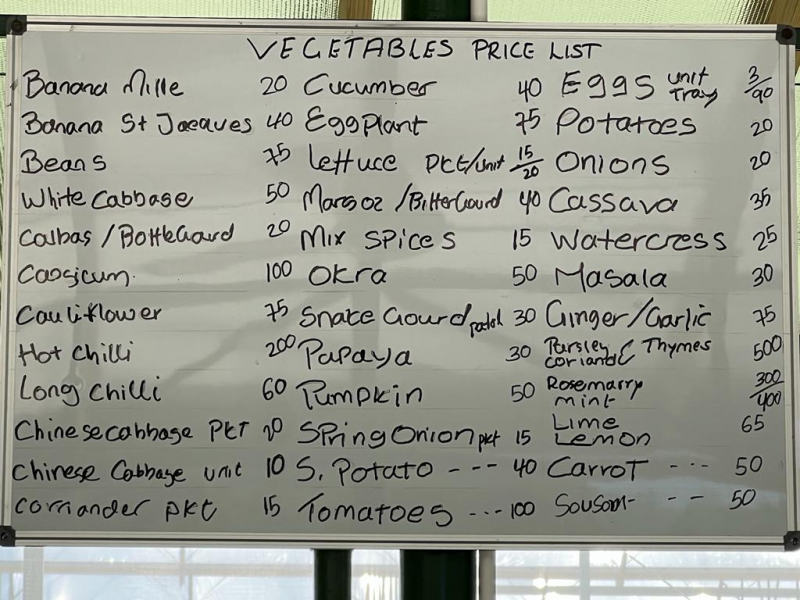 VEGETABLES PRICE LIST
Banana Mille 20
Banana St Jacques 40
Beans 75
White Cabbage 50
Calbas / BottleGourd 20
Capsicum 100
Cauliflower 75
Hot Chilli 200
Long Chilli 60
Chinese cabbage PKT 20
Chinese Cabbage unit 10
Corriander pkt 15
Cucumber 40
EggPlant 75
Lettuce PKT/unit 15/20
Margoz /BitterGourd 40
Mix SPices 15
Okra 50
Snake Gourd 30
Papaya 30
Pumpkin 50
SPring Onion pkt 15
S. Potato --- 40
Tomatoes --- 100
Eggs unit Tray 3/90
Potatoes 20
Onions 20
Cassava 35
Watercress 25
Masala 30
Ginger/Garlic 75
Parsley Thymes 500
Rosemarry 300
mint 400
Lime
Lemon 65
Carrot --- 50
-- 50